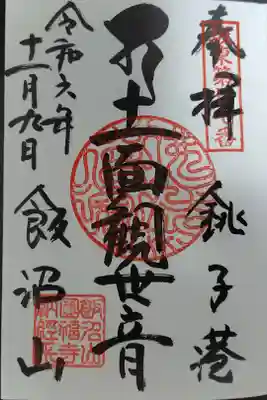 奉拝
銚子港
十一面觀世音
令和六年
十一月九日
飯沼山
飯沼山
圓福寺